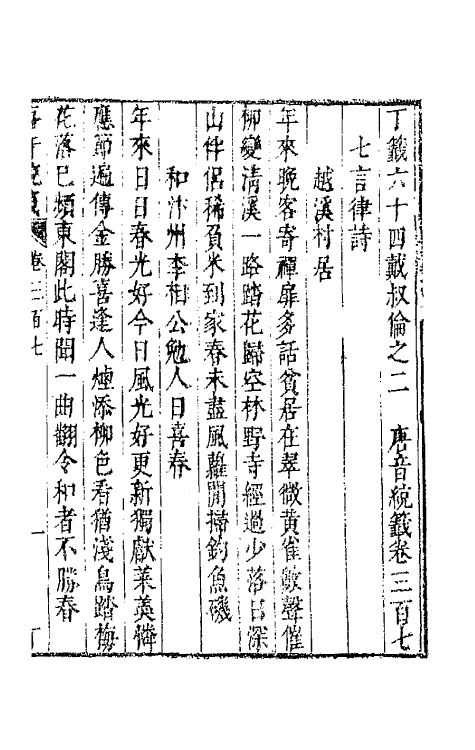 丁籤六十四戴叔倫之二　唐音統籤卷三百七
七言律詩
越溪村居
年來晚客寄禪扉多話貧居在翠微黃雀數聲催
柳變清溪一路踏花歸空林野寺經過少落日深
山伴侶稀負米到家春未盡風蘿閒掃釣魚磯
和汴州李相公勉人日喜春
年來日日春光好今日風光好更新獨獻菜羮憐
應節遍傳金勝喜逢人煙添柳色看猶淺鳥踏梅
花落已頻東閣此時聞一曲翻令和者不勝春
卷三百七　一　丁